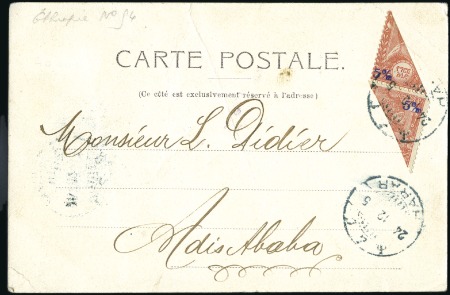 Éthiopie No 94
CARTE POSTALE.
(Ce côté est exclusivement réservé à l'adresse)
Monsieur L. Didier
Adis Ababa
HARAR
24 12 5